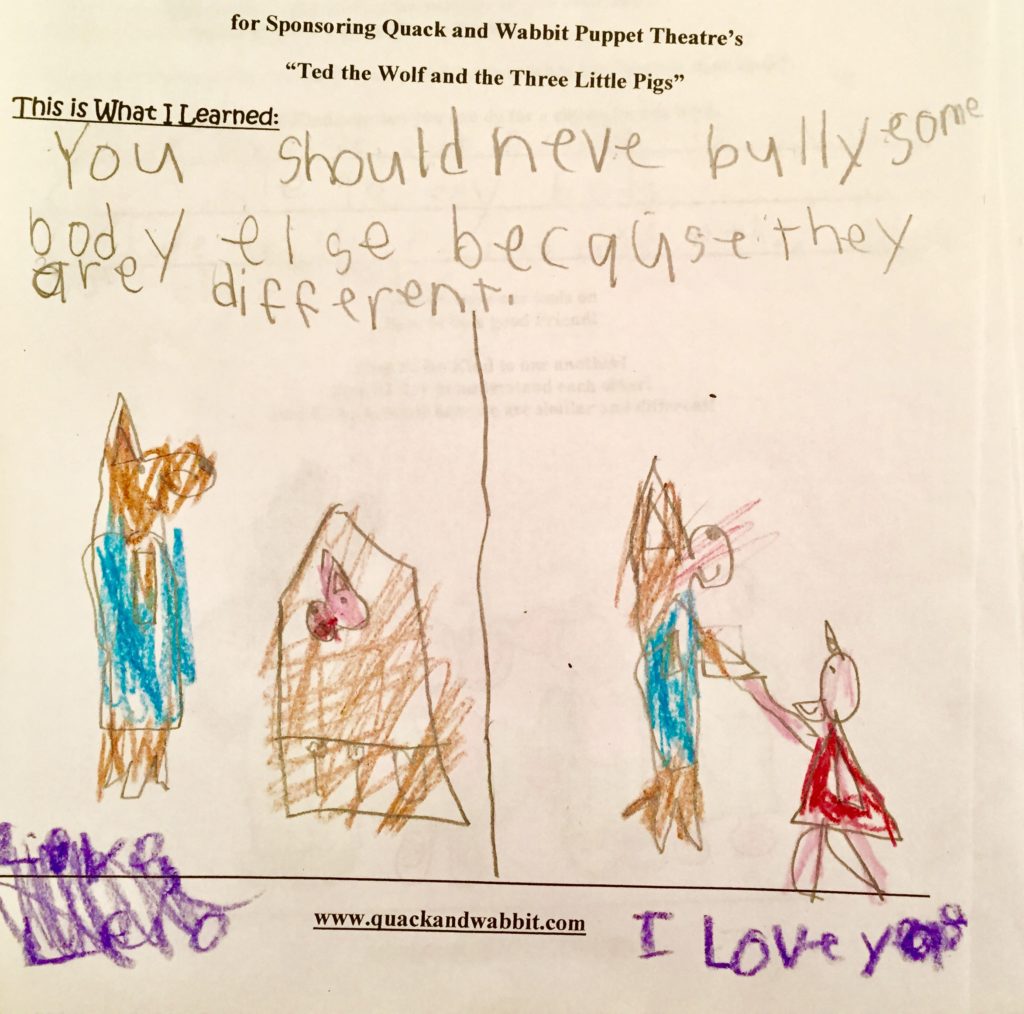 for Sponsoring Quack and Wabbit Puppet Theatre's
"Ted the Wolf and the Three Little Pigs"
This is What I Learned:
You should neve bully some
body else because they
are different.
www.quackandwabbit.com
I Love you